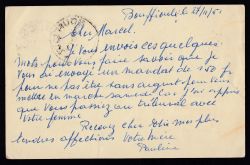 Bouffioulx le 27/11/51
Cher Marcel.
Je vous envois ces quelques
mots pour vous faire savoir que je
vous ai envoyé un mandat de 150 frs
pour ne pas être sans argent pour
mettre en marche samedi. Car j'ai appris
que vous passez au tribunal avec
Votre femme
Recevez cher fils mes plus
tendres affections Votre Mère
Pauline